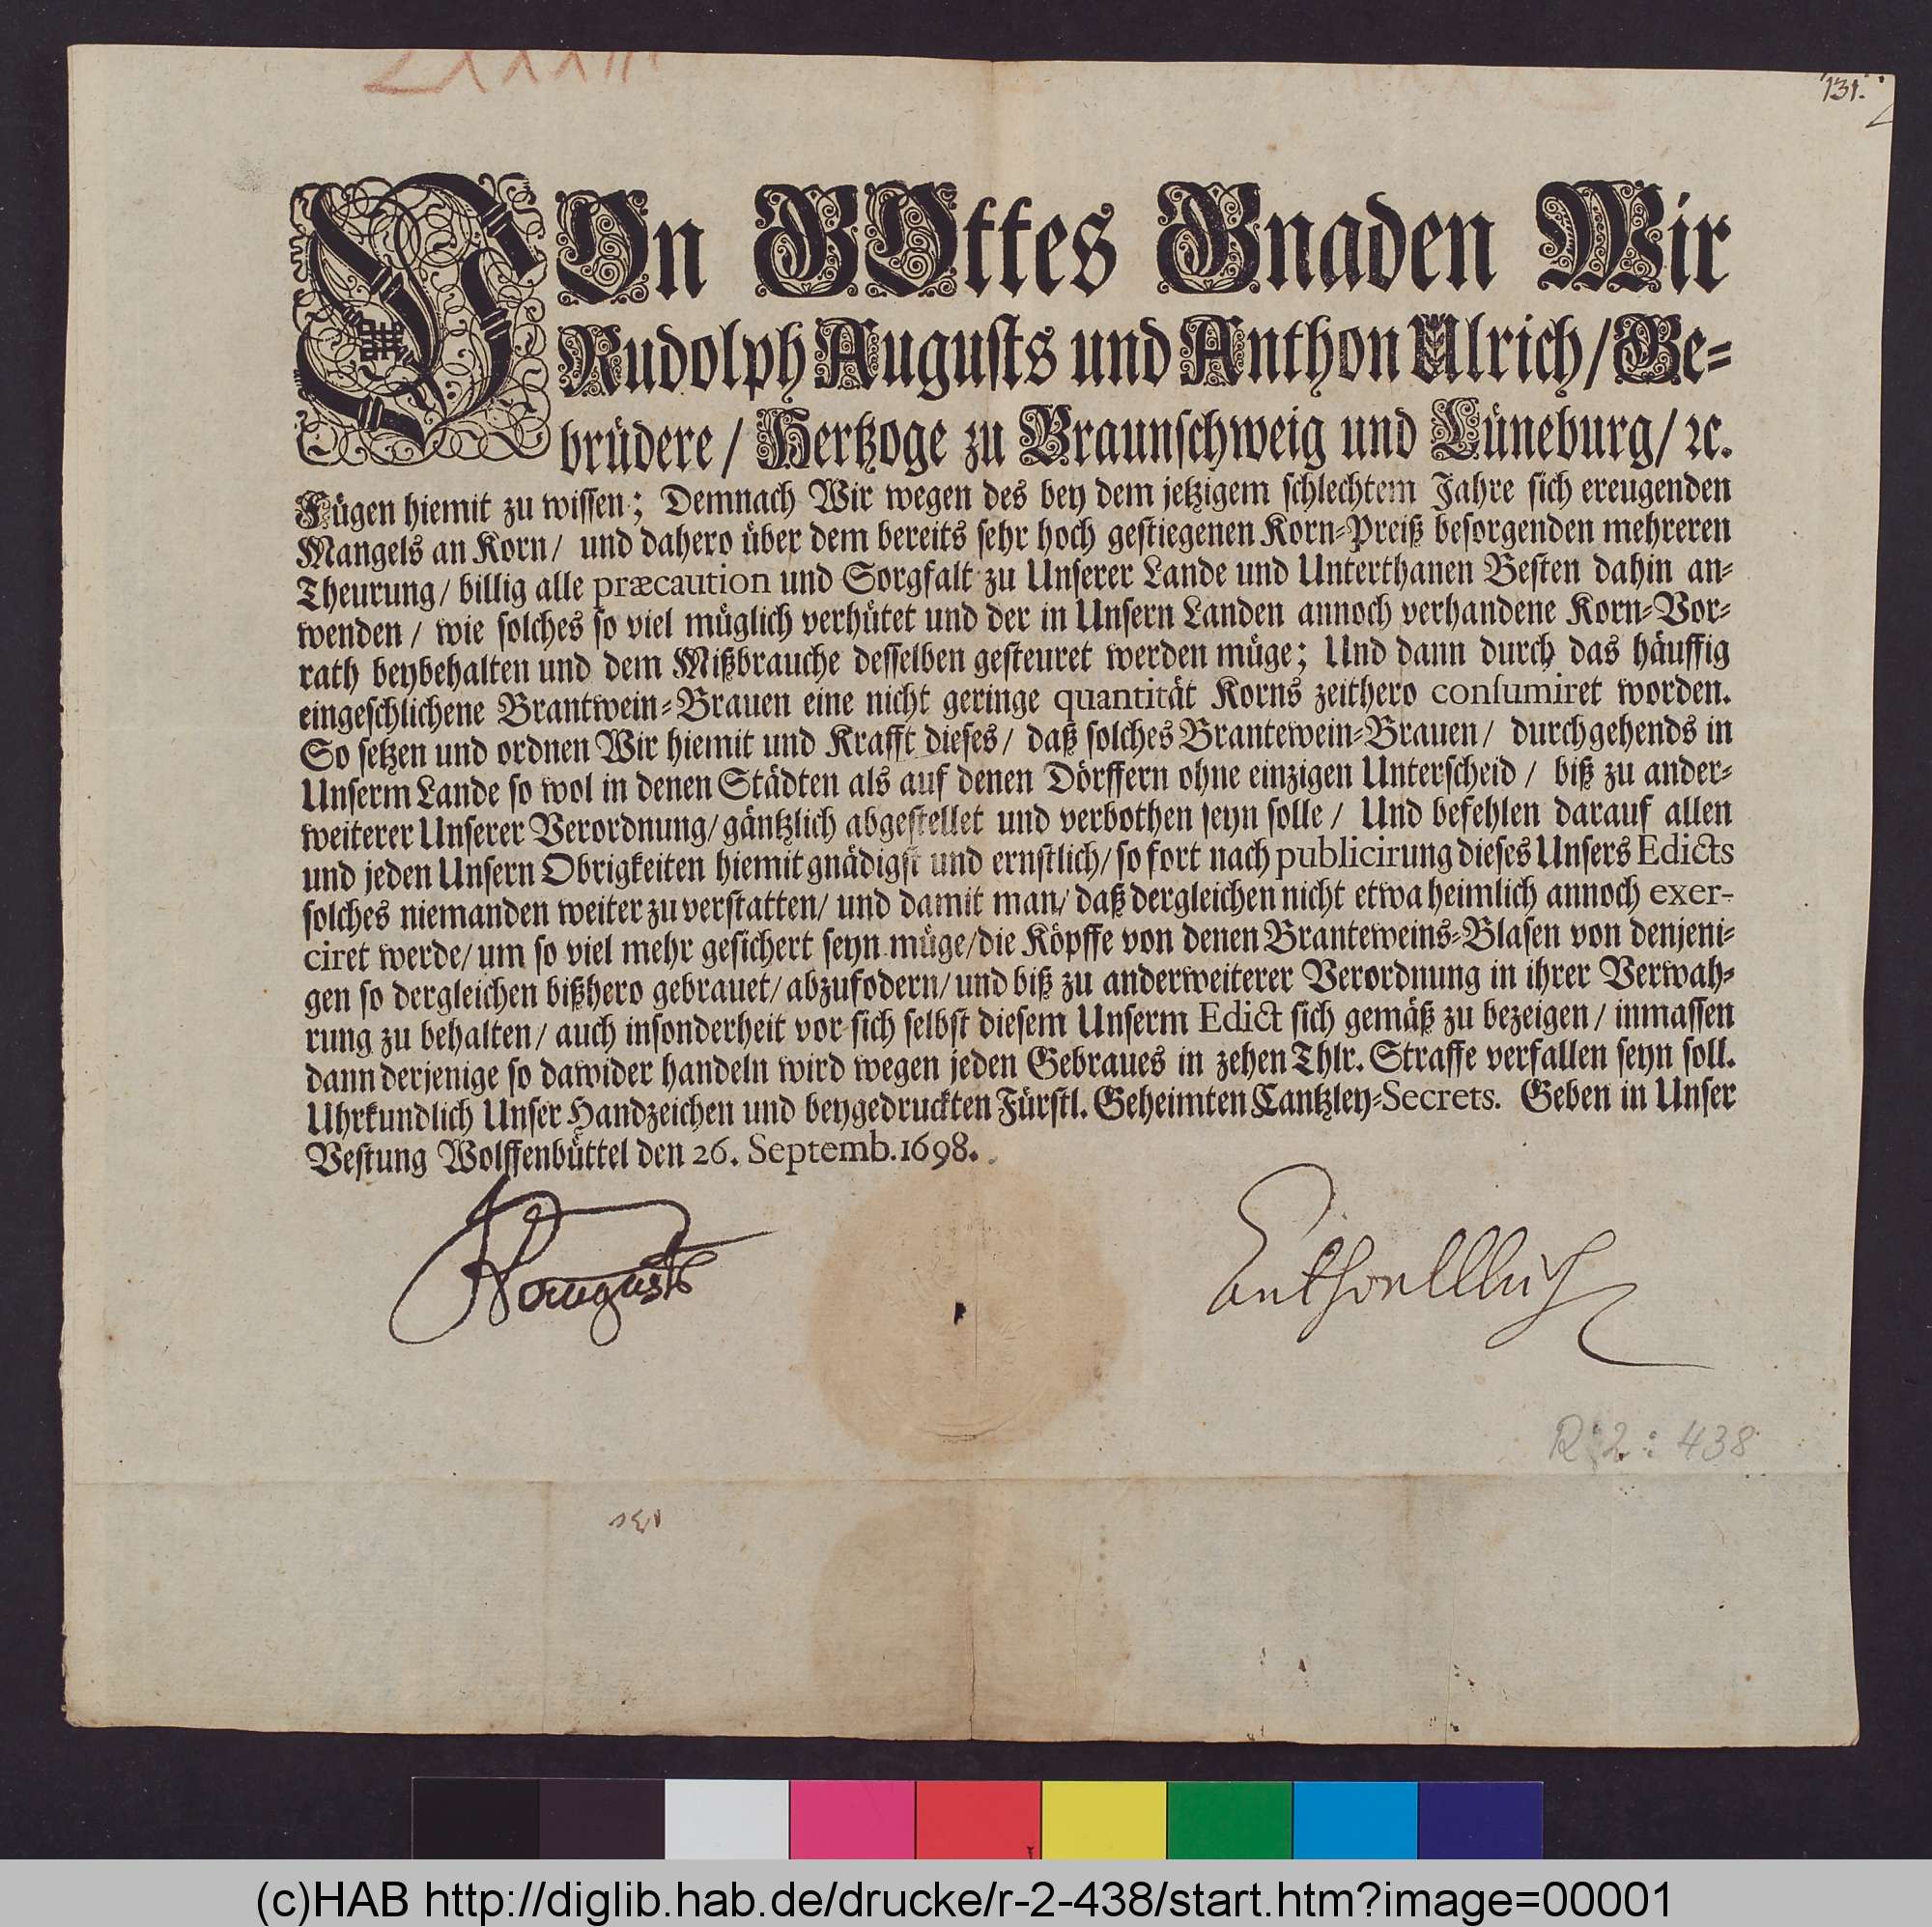 LXXXIII
131.
VOn GOttes Gnaden Wir
Rudolph Augusts und Anthon Ulrich/ Ge-
brüdere/ Hertzoge zu Braunschweig und Lüneburg/ ꝛc.
Fügen hiemit zu wissen; Demnach Wir wegen des bey dem jetzigem schlechtem Jahre sich ereugenden
Mangels an Korn/ und dahero über dem bereits sehr hoch gestiegenen Korn-Preiß besorgenden mehreren
Theurung/ billig alle præcaution und Sorgfalt zu Unserer Lande und Unterthanen Besten dahin an-
wenden/ wie solches so viel müglich verhütet und der in Unsern Landen annoch verhandene Korn-Vor-
rath beybehalten und dem Mißbrauche desselben gesteuret werden müge; Und dann durch das häuffig
eingeschlichene Brantwein-Brauen eine nicht geringe quantität Korns zeithero consumiret worden.
So setzen und ordnen Wir hiemit und Krafft dieses/ daß solches Brantewein-Brauen/ durchgehends in
Unserm Lande so wol in denen Städten als auf denen Dörffern ohne einzigen Unterscheid/ biß zu ander-
weiterer Unserer Verordnung/ gäntzlich abgestellet und verbothen seyn solle/ Und befehlen darauf allen
und jeden Unsern Obrigkeiten hiemit gnädigst und ernstlich/ so fort nach publicirung dieses Unsers Edicts
solches niemanden weiter zu verstatten/ und damit man/ daß dergleichen nicht etwa heimlich annoch exer-
ciret werde/ um so viel mehr gesichert seyn müge/ die Köpffe von denen Branteweins-Blasen von denjeni-
gen so dergleichen bißhero gebrauet/ abzufodern/ und biß zu anderweiterer Verordnung in ihrer Verwah-
rung zu behalten/ auch insonderheit vor sich selbst diesem Unserm Edict sich gemäß zu bezeigen/ inmassen
dann derjenige so dawider handeln wird wegen jeden Gebraues in zehen Thlr. Straffe verfallen seyn soll.
Uhrkundlich Unser Handzeichen und beygedruckten Fürstl. Geheimten Cantzley-Secrets. Geben in Unser
Vestung Wolffenbüttel den 26. Septemb. 1698.
R augusts
Anthon Ulrich
R: 2: 438
131
(c)HAB http://diglib.hab.de/drucke/r-2-438/start.htm?image=00001